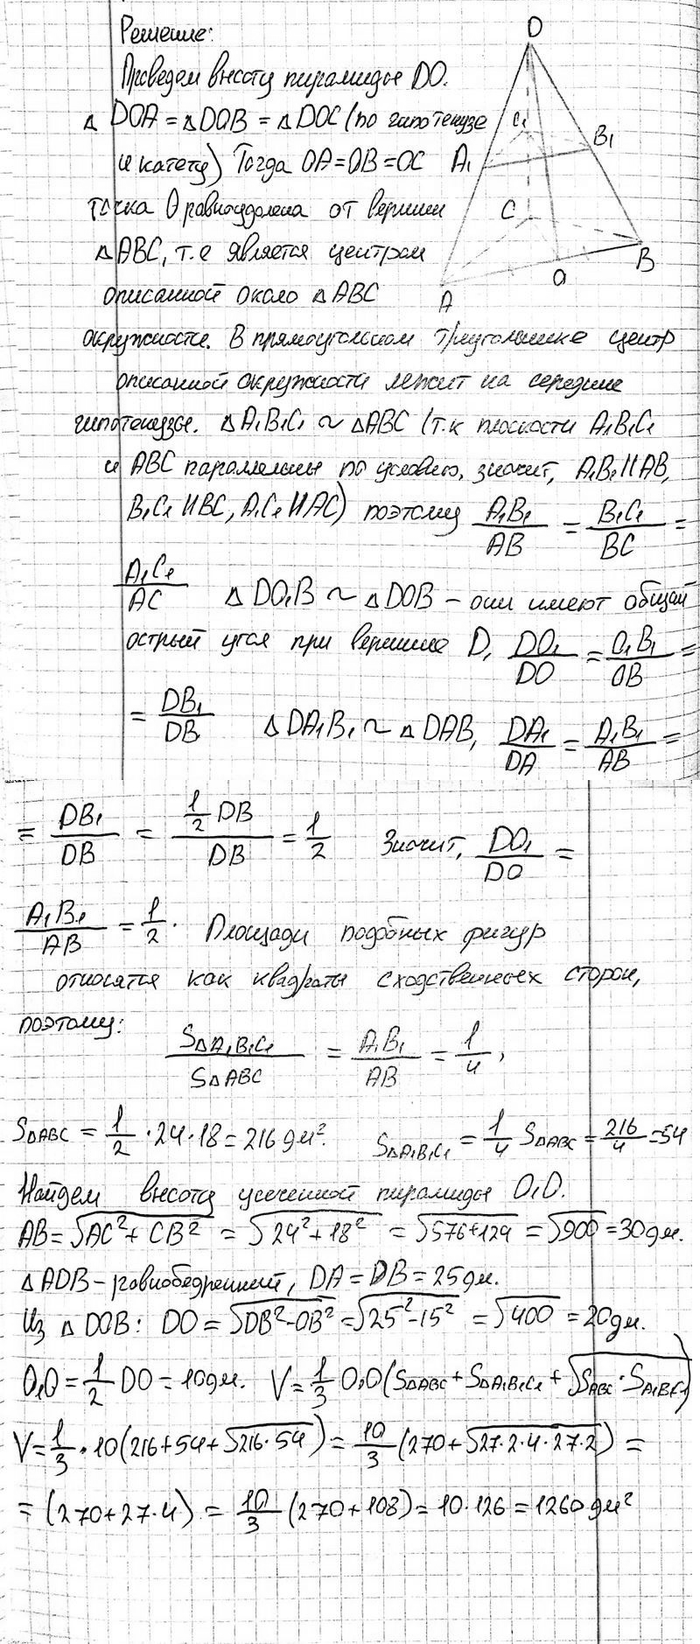 Решение:
Проведем высоту пирамиды DO.
△ DOA = △DOB = △DOC (по гипотенузе
и катету) Тогда OA=OB=OC
точка O равноудалена от вершин
△ABC, т.е является центром
описанной около △ABC
окружности. В прямоугольном треугольнике центр
описанной окружности лежит на середине
гипотенузы. △A₁B₁C₁ ~ △ABC (т.к плоскости A₁B₁C₁
и ABC параллельны по условию, значит, A₁B₁ || AB,
B₁C₁ || BC, A₁C₁ || AC) поэтому A₁B₁/AB = B₁C₁/BC =
A₁C₁/AC △DO₁B ~ △DOB – они имеют общий
острый угол при вершине D, DO₁/DO = O₁B₁/OB =
= DB₁/DB △DA₁B₁ ~ △DAB, DA₁/DA = A₁B₁/AB =
= DB₁/DB = ½DB/DB = 1/2 Значит, DO₁/DO =
A₁B₁/AB = 1/2. Площади подобных фигур
относятся как квадраты сходственных сторон,
поэтому:
S△A₁B₁C₁/S△ABC = A₁B₁/AB = 1/4,
S△ABC = 1/2 · 24 · 18 = 216 дм². S△A₁B₁C₁ = 1/4 S△ABC = 216/4 = 54
Найдем высоту усеченной пирамиды O₁O.
AB = √(AC² + CB²) = √(24² + 18²) = √(576+124) = √900 = 30 дм.
△ADB – равнобедренный, DA = DB = 25 дм.
Из △DOB: DO = √(DB²-OB²) = √(25²-15²) = √400 = 20 дм.
O₁O = 1/2 DO = 10 дм. V = 1/3 O₁O (S△ABC + S△A₁B₁C₁ + √(SABC · SA₁B₁C₁))
V = 1/3 · 10 (216 + 54 + √(216 · 54)) = 10/3 (270 + √(27·2·4·27·2)) =
= (270 + 27·4) = 10/3 (270 + 108) = 10·126 = 1260 дм²
D
C₁
B₁
A₁
C
B
O
A